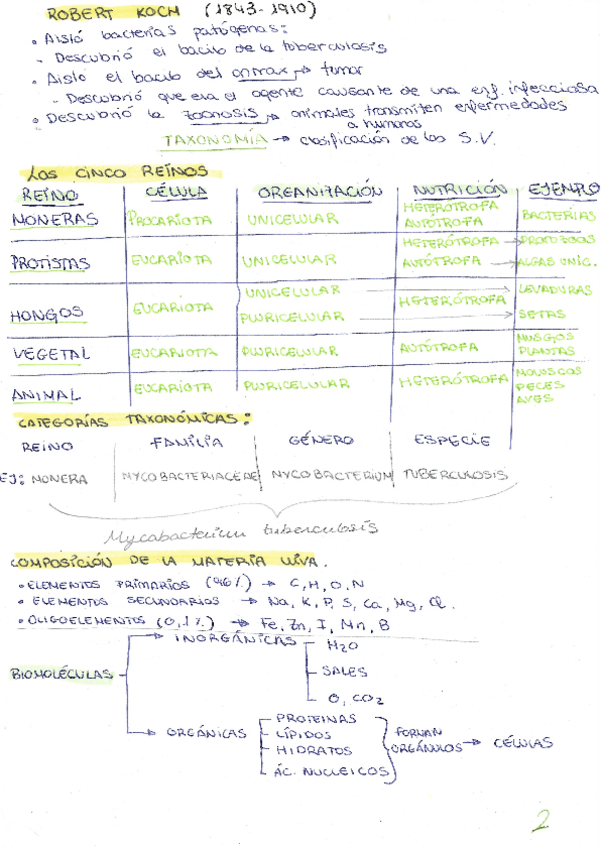 ROBERT KOCH (1843-1910)
• Aisló bacterias patógenas:
- Descubrió el bacilo de la tuberculosis
• Aisló el bacilo del antrax → tumor
- Descubrió que era el agente causante de una enf. infecciosa
• Descubrió la zoonosis → animales transmiten enfermedades
a humanos
TAXONOMÍA → clasificación de los S.V.
LOS CINCO REINOS
REINO CÉLULA ORGANIZACIÓN NUTRICIÓN EJEMPLO
MONERAS PROCARIOTA UNICELULAR HETERÓTROFA AUTÓTROFA BACTERIAS
PROTISTAS EUCARIOTA UNICELULAR HETERÓTROFA → PROTOZOOS
AUTÓTROFA → ALGAS UNIC.
HONGOS EUCARIOTA UNICELULAR → LEVADURAS
PLURICELULAR → HETERÓTROFA SETAS
VEGETAL EUCARIOTA PLURICELULAR AUTÓTROFA MUSGOS PLANTAS
ANIMAL EUCARIOTA PLURICELULAR HETERÓTROFA MOLUSCOS PECES AVES
CATEGORÍAS TAXONÓMICAS:
REINO FAMILIA GÉNERO ESPECIE
EJ: MONERA MYCOBACTERIACEAE MYCOBACTERIUM TUBERCULOSIS
Mycobacterium tuberculosis
COMPOSICIÓN DE LA MATERIA VIVA.
• ELEMENTOS PRIMARIOS (96%) → C, H, O, N
• ELEMENTOS SECUNDARIOS → Na, K, P, S, Ca, Mg, Cl.
• OLIGOELEMENTOS (0,1%) → Fe, Zn, I, Mn, B
BIOMOLÉCULAS
→ INORGÁNICAS
H2O
SALES
O, CO2
→ ORGÁNICAS
PROTEINAS
LÍPIDOS
HIDRATOS
ÁC. NUCLEICOS
FORMAN
ORGÁNULOS → CÉLULAS
2